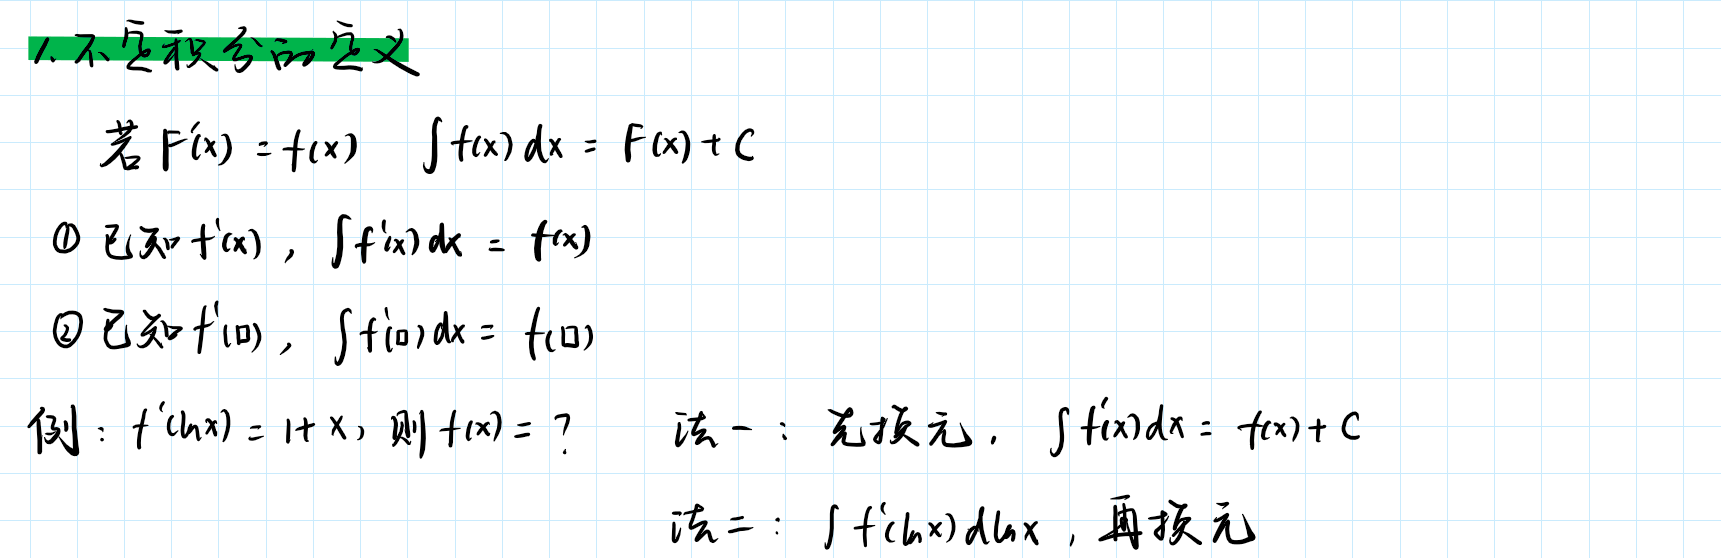 1. 不定积分的定义
若 F'(x) = f(x) ∫f(x) dx = F(x) + C
① 已知 f'(x) , ∫f'(x) dx = f(x)
② 已知 f'(□) , ∫f'(□) dx = f(□)
例 : f'(lnx) = 1 + x , 则 f(x) = ? 法一 : 先换元 . ∫f'(x) dx = f(x) + C
法二 : ∫f'(lnx) dlnx , 再换元